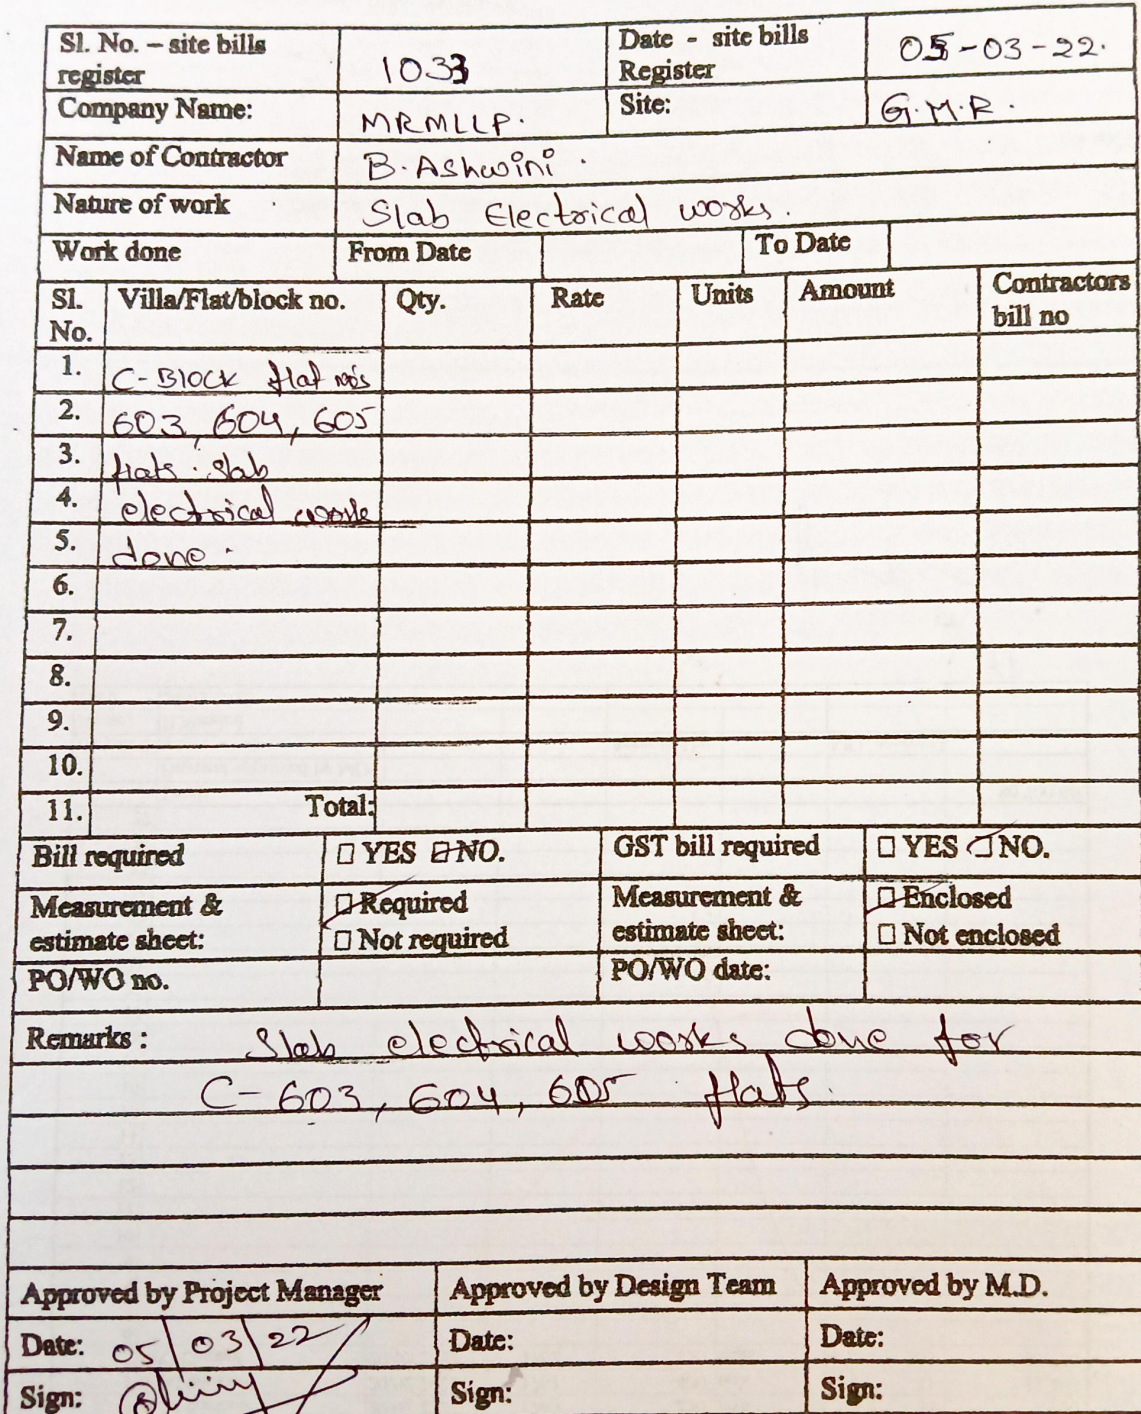 Sl. No. – site bills register 1033 Date - site bills Register 05-03-22.
Company Name: MRMLLP. Site: G.M.R.
Name of Contractor B. Ashwini.
Nature of work Slab Electrical works.
Work done From Date To Date
Sl. No. Villa/Flat/block no. Qty. Rate Units Amount Contractors bill no
1. C-Block flat no's
2. 603, 604, 605
3. flats. slab
4. electrical work
5. done.
6.
7.
8.
9.
10.
11. Total:
Bill required ☐ YES ☑ NO. GST bill required ☐ YES ☑ NO.
Measurement & estimate sheet: ☑ Required ☐ Not required Measurement & estimate sheet: ☑ Enclosed ☐ Not enclosed
PO/WO no. PO/WO date:
Remarks : Slab electrical works done for
C-603, 604, 605 flats.
Approved by Project Manager Approved by Design Team Approved by M.D.
Date: 05/03/22 Date: Date:
Sign: Sign: Sign: